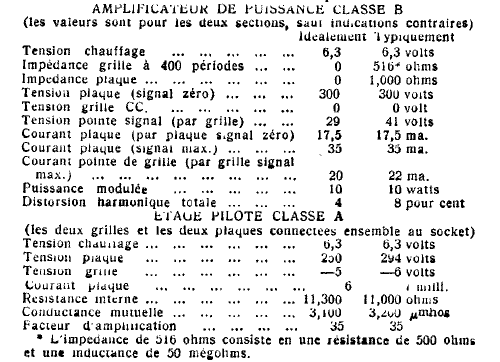 AMPLIFICATEUR DE PUISSANCE CLASSE B
(les valeurs sont pour les deux sections, sauf indications contraires)
Idéalement Typiquement
Tension chauffage ... ... ... ... ... 6,3 6,3 volts
Impédance grille à 400 périodes ... ... 0 516* ohms
Impedance plaque ... ... ... ... ... 0 1,000 ohms
Tension plaque (signal zéro) ... ... ... 300 300 volts
Tension grille CC. ... ... ... ... ... 0 0 volt
Tension pointe signal (par grille) ... ... 29 41 volts
Courant plaque (par plaque signal zéro) 17,5 17,5 ma.
Courant plaque (signal max.) ... ... ... 35 35 ma.
Courant pointe de grille (par grille signal
max.) ... ... ... ... ... ... ... 20 22 ma.
Puissance modulée ... ... ... ... ... 10 10 watts
Distorsion harmonique totale ... ... ... 4 8 pour cent
ETAGE PILOTE CLASSE A
(les deux grilles et les deux plaques connectées ensemble au socket)
Tension chauffage ... ... ... ... ... 6,3 6,3 volts
Tension plaque ... ... ... ... ... 250 294 volts
Tension grille ... ... ... ... ... —5 —6 volts
Courant plaque ... ... ... ... 6 7 mill.
Resistance interne ... ... ... ... ... 11,300 11,000 ohms
Conductance mutuelle ... ... ... ... 3,100 3,200 µmhos
Facteur d'amplification ... ... ... ... 35 35
* L'impedance de 516 ohms consiste en une résistance de 500 ohms
et une inductance de 50 mégohms.